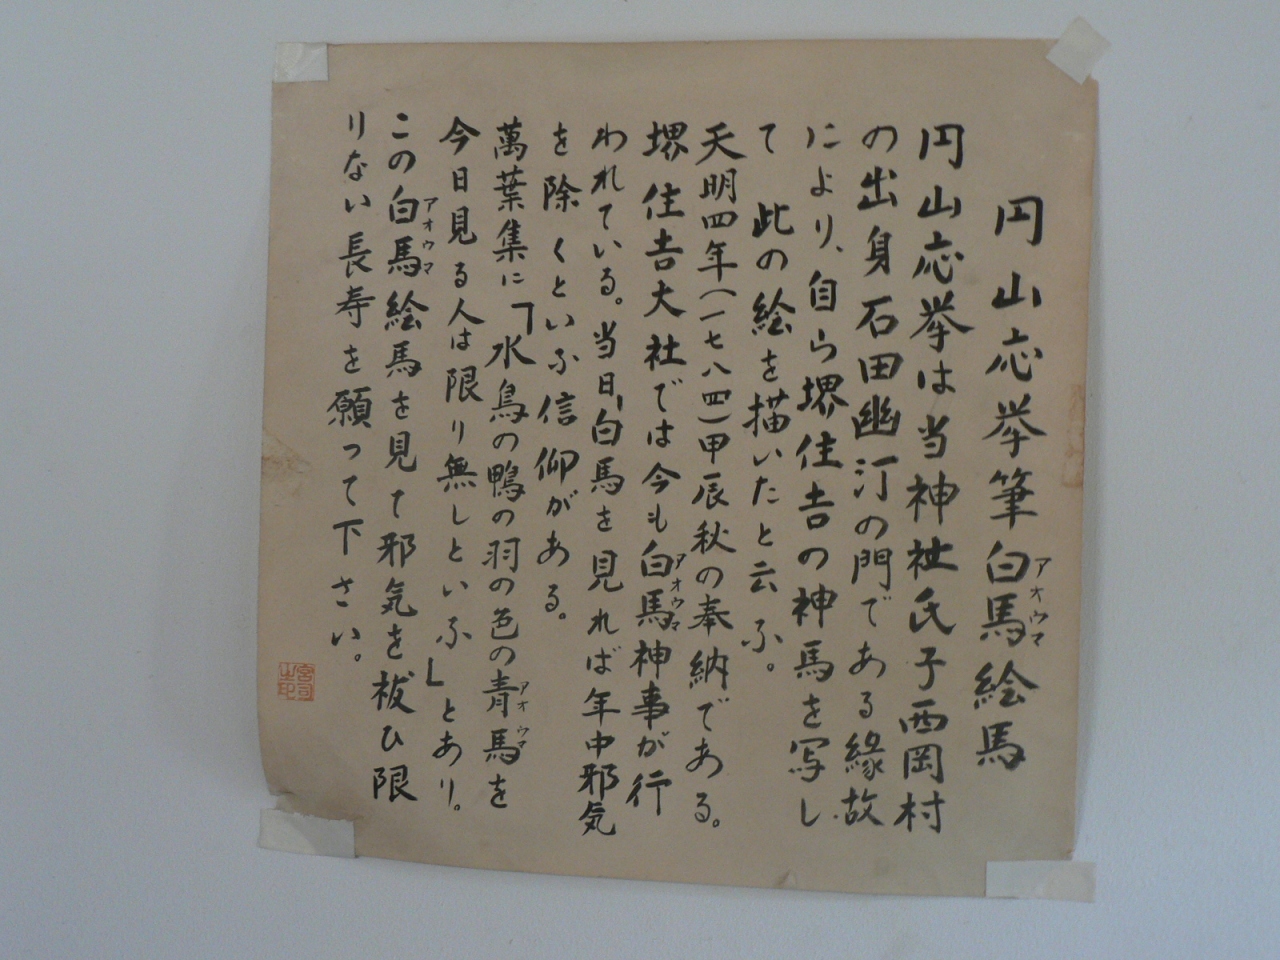 円山応挙筆白馬絵馬
アオウマ
円山応挙は当神社氏子西岡村
の出身石田幽汀の門である縁故
により、自ら堺住吉の神馬を写し
て 此の絵を描いたと云ふ。
天明四年(一七八四)甲辰秋の奉納である。
堺住吉大社では今も白馬神事が行
アオウマ
われている。当日、白馬を見れば年中邪気
を除くといふ信仰がある。
萬葉集に「水鳥の鴨の羽の色の青馬を
アオウマ
今日見る人は限り無しといふ」とあり。
この白馬絵馬を見て邪気を祓ひ限
アオウマ
りない長寿を願って下さい。
宮司之印